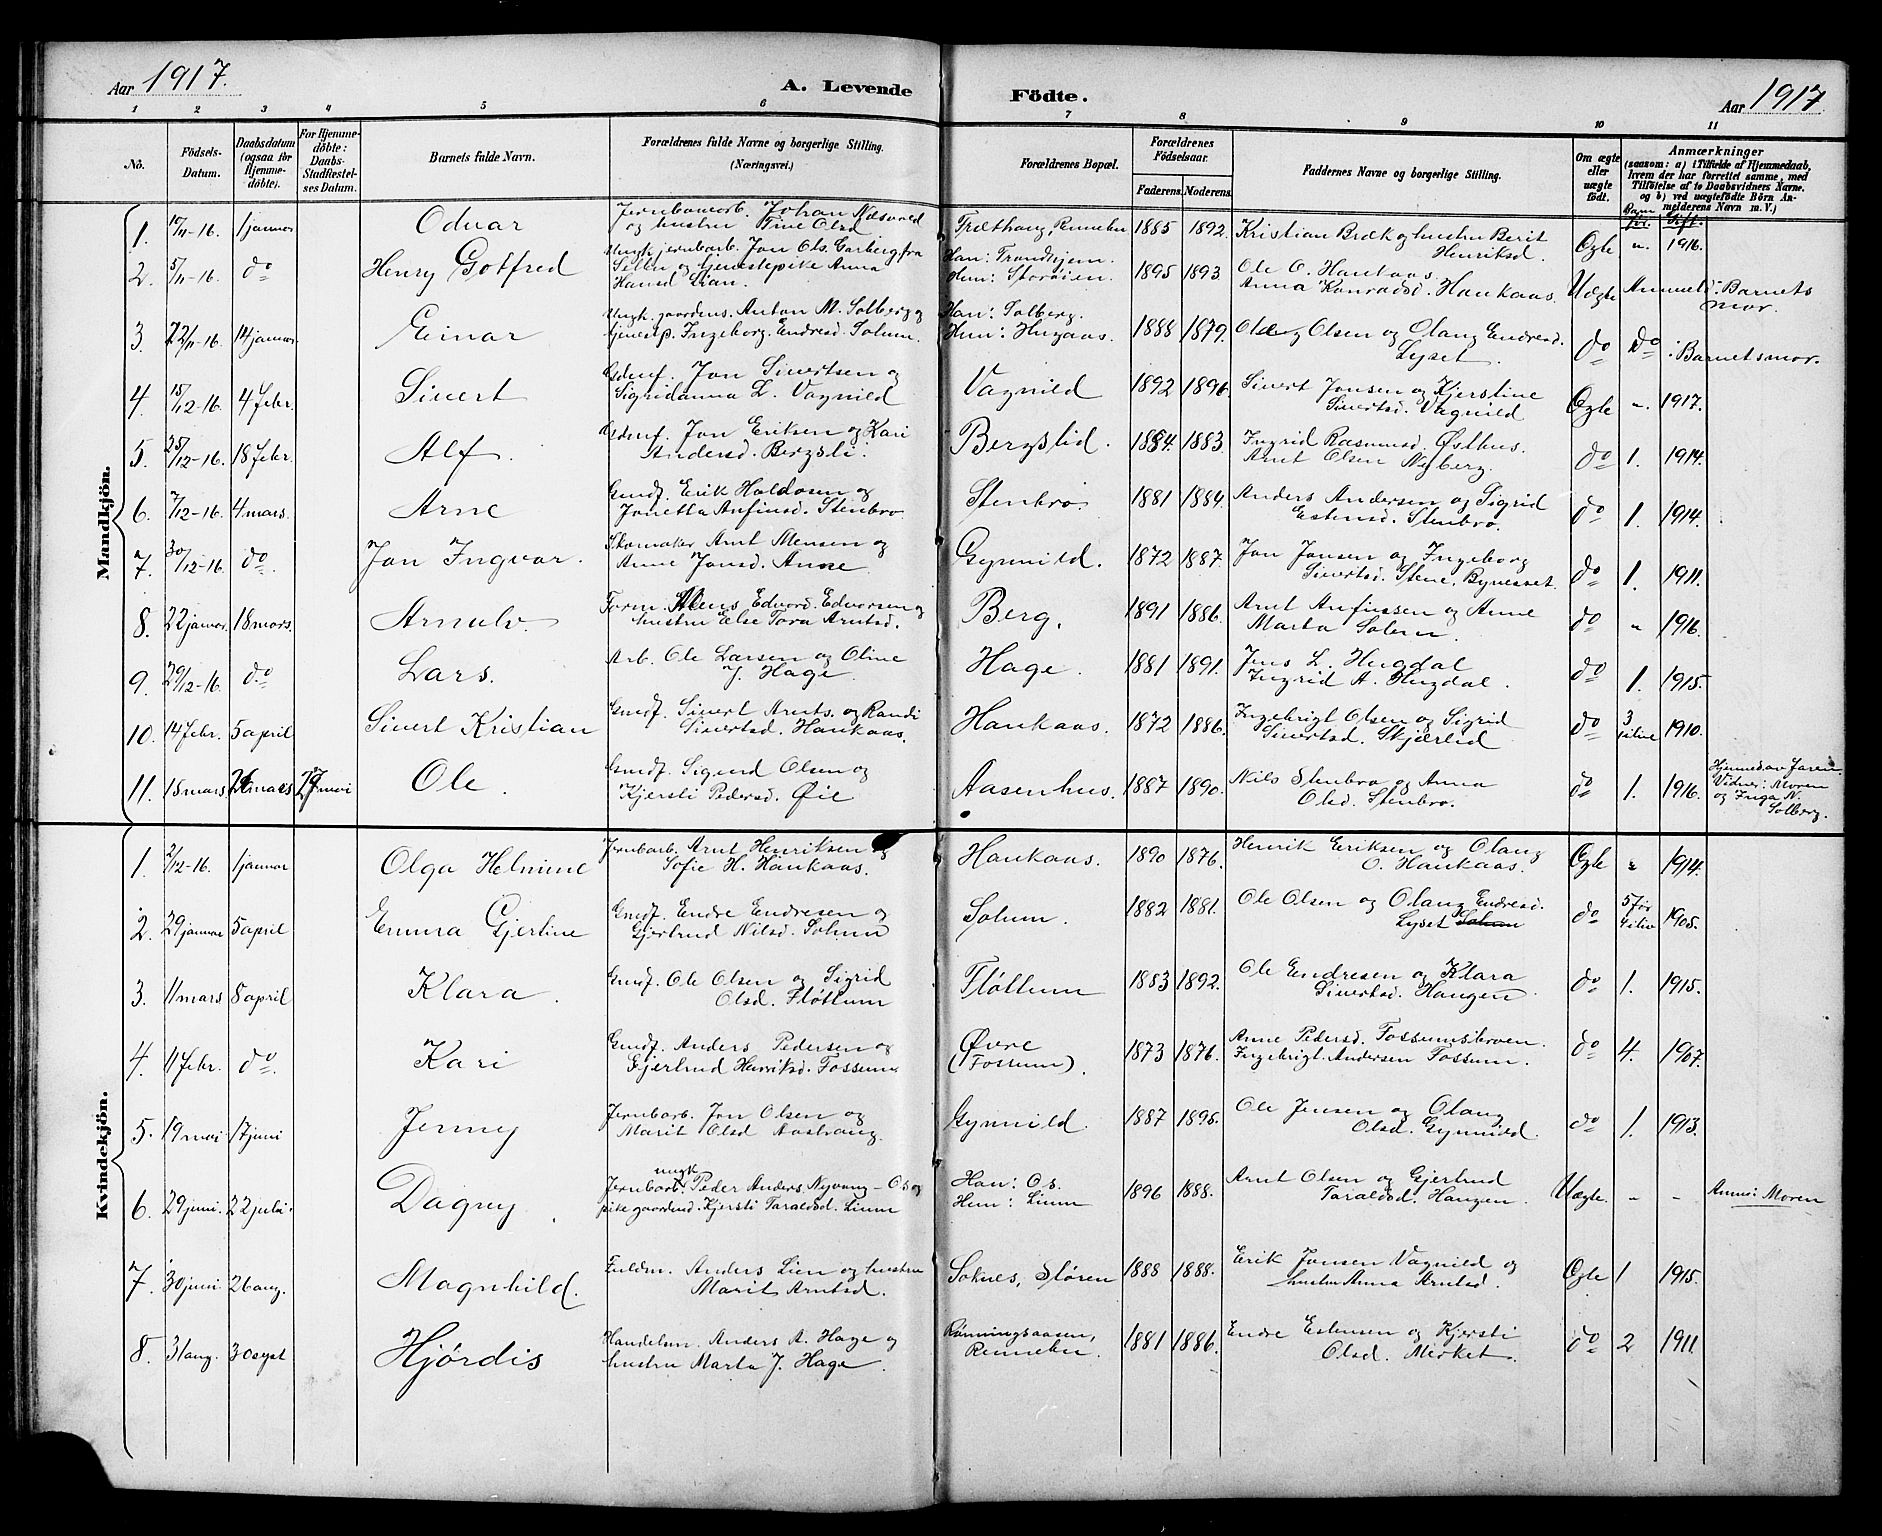 Aar 1917. A. Levende Födte. Aar 1917
1 2 3 4 5 6 7 8 9 10 11
No. Födsels-Datum. Daabsdatum (ogsaa for Hjemme-döbte). For Hjemme-döbte: Daabs-Stadfæstel-ses Datum. Barnets fulde Navn. Forældrenes fulde Navne og borgerlige Stilling. (Næringsvei.) Forældrenes Bopæl. Forældrenes Födselsaar. Faderens. Moderens. Faddernes Navne og borgerlige Stilling. Om ægte eller uægte födt. Anmærkninger (saasom: a) i Tilfælde af Hjemmedaab, hvem der har forrettet samme, med Tilföielse af to Daabsvidners Navne. og b) ved uægtefödte Börn An-melderens Navn m. V.)
Barn før. Gift.
Mandkjön.
1. 10/11-16. 1 januar Odvar Jernbanearb. Johan Næsvold og hustru Trine Olsd Træthaug, Rennebu 1885 1892. Kristian Bræk og hustru Berit Henriksd. Ægte „ 1916.
2. 5/11-16. do Henry Gotfred Ungk. jernbarb. Jon Ols. Garberg fra Selbu og tjenestepike Anna Hansd. Han: Trondhjem. Hun: Storøien. 1895 1893 Ole O. Haukaas. Anna Konradsd. Haukaas. Uægte Anmeldt: Barnets mor.
3. 22/11-16. 14 januar Einar Ungk. gaardens. Anton M. Solberg og tjenestp. Ingeborg Endresd. Solum. Han: Solberg. Hun: Hugaas. 1888 1879. Ole Olsen og Olaug Endresd. Lyset. do Do: Barnets mor.
4. 15/12-16 4 febr. Sivert Gdmf. Jon Sivertsen og Sigridanna L. Vagnild Vagnild 1892 1896. Sivert Jonsen og Kjerstine Sivertsd. Vagnild Ægte „ 1917.
5. 25/12-16. 18 febr. Alf. Gdmf. Jon Eriksen og Kari Andersd. Bergsli. Bergslid. 1884. 1883. Ingrid Rasmusd. Østhus. Arnt Olsen Nyberg. do 1. 1914.
6. 7/12-16. 4 mars. Arne Gmdf. Erik Haldosen og Jonetta Anfinsd. Stenbro Stenbro 1881 1884. Anders Andersen og Sigrid Estensd. Stenbro. do 1. 1914.
7. 30/12-16. do Jon Ingvar. Skomaker Arnt Mensen og Anne Jonsd. Aune Gynnild. 1872 1887. Jon Jonsen og Ingeborg Sivertsd. Stene, Bynesset do 1. 1911.
8. 22 januar. 18 mars. Arnulv. Form. Mens Edvard Edvarsen og hustru Else Tora Arntsd. Berg. 1891 1886. Arnt Anfinsen og Anne Marta Solem. do „ 1916.
9. 29/12-16. do Lars. Arb. Ole Larsen og Oline J. Hage. Hage. 1881 1891. Jens L. Hugdal Ingrid A. Hugdal. do 1. 1915.
10. 14 febr. 5 april Sivert Kristian Gmdf. Sivert Arnts. og Randi Sivertsd. Haukaas. Haukaas. 1872 1886. Ingebrigt Olsen og Sigrid Sivertsd. Skjærlid do 3 ilive 1910.
11. 18 mars 26 mars 27 mai Ole. Gmdf. Sigurd Olsen og Kjersti Pedersd. Øie Aasenhus. 1887 1890. Nils Stenbro og Anna Olsd. Stenbro. do 1. 1916. Hjemmed. av Faren. Vidner: Moren og Inga N. Solberg.
Kvindekjön.
1. 2/12-16. 1 januar Olga Helmine Jernbarb. Arnt Henriksen og Sofie H. Haukaas. Haukaas. 1890 1876. Henrik Eriksen og Olaug O. Haukaas. Ægte „ 1914.
2. 29 januar 5 april Emma Gjertine Gmdf. Endre Endresen og Gjertrud Nilsd. Solum Solum. 1882 1881. Ole Olsen og Olaug Endresd. Lyset Solum do 5 før 4 ilive 1905.
3. 11 mars 8 april Klara. Gmdf. Ole Olsen og Sigrid Olsd. Fløttum Fløttum 1883 1892. Ole Endresen og Klara Sivertsd. Haugen. do 1. 1915.
4. 11 febr. do. Kari Gmdf. Anders Pedersen og Gjertrud Henriksd. Fossum Øvre (Fossum). 1873 1876. Anne Pedersd. Fossumsbroen. Ingebrigt Andersen Fossum. do 4. 1907.
5. 19 mai 17 juni Jenny Jernbarb. Jon Olsen og Marit Olsd Aashaug. Gynnild. 1887 1895. Ole Jensen og Olaug Olsd. Gynnild. do 1. 1913.
6. 29 juni. 22 juli. Dagny. Jernbarb. ungk Peder Anders. Nyvang – Os og pike gaardmd. Kjersti Taraldsd. Lium Han: Os. Hun: Lium 1896 1888. Arnt Olsen og Gjertrud Taraldsd. Haugen. Uægte. - - Anm: Moren
7. 30 juni 26 aug. Magnhild. Fuldm. Anders Lien og hustru Marit Arntsd. Soknes, Støren 1888 1888. Erik Jonsen Vagnild og hustru Anna Arntsd. Ægte 1 1915.
8. 31 aug. 30 sept Hjørdis Handelsm. Anders A. Hage og hustru Marta J. Hage. Rønningsaasen, Rennebu. 1881 1886. Endre Estensen og Kjersti Olsd. Merket. do 2 1911.